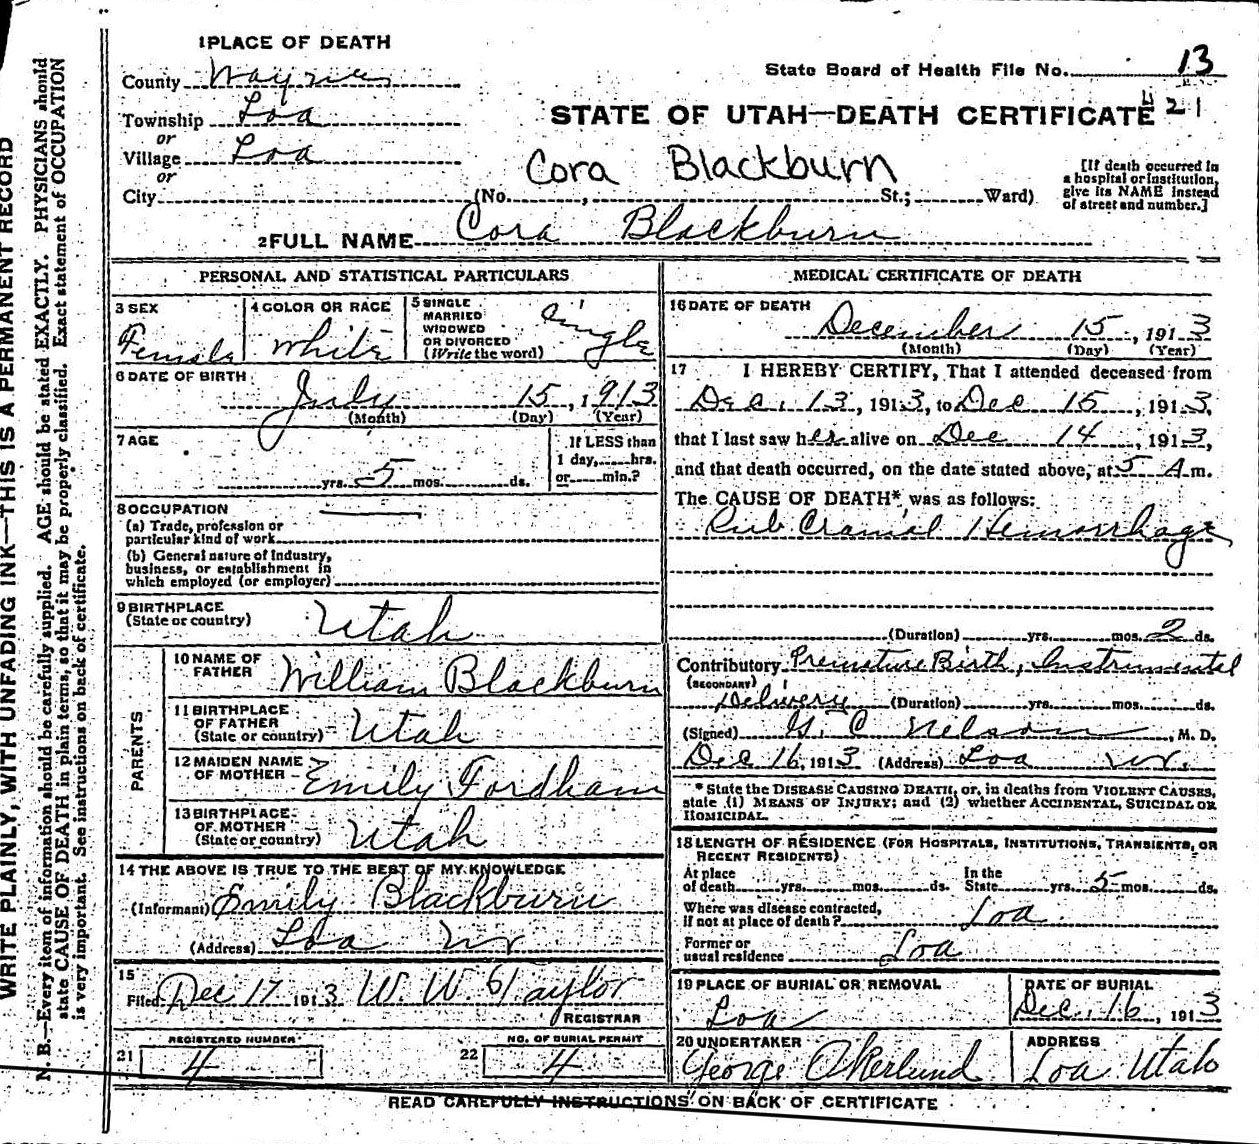 WRITE PLAINLY, WITH UNFADING INK—THIS IS A PERMANENT RECORD
N. B.—Every item of information should be carefully supplied. AGE should be stated EXACTLY. PHYSICIANS should
state CAUSE OF DEATH in plain terms, so that it may be properly classified. Exact statement of OCCUPATION
is very important. See instructions on back of certificate.
1 PLACE OF DEATH
County Wayne
Township Loa
or
Village Loa
or
City
State Board of Health File No. 13
STATE OF UTAH—DEATH CERTIFICATE 21
Cora Blackburn
(No. , St.; Ward)
[If death occurred in
a hospital or institution,
give its NAME instead
of street and number.]
2 FULL NAME Cora Blackburn
PERSONAL AND STATISTICAL PARTICULARS
3 SEX
Female
4 COLOR OR RACE
White
5 SINGLE
MARRIED
WIDOWED
OR DIVORCED
(Write the word)
Single
6 DATE OF BIRTH
July 15, 1913
(Month) (Day) (Year)
7 AGE
yrs. 5 mos. ds.
If LESS than
1 day, hrs.
or min.?
8 OCCUPATION
(a) Trade, profession or
particular kind of work
(b) General nature of industry,
business, or establishment in
which employed (or employer)
9 BIRTHPLACE
(State or country) Utah
PARENTS
10 NAME OF
FATHER William Blackburn
11 BIRTHPLACE
OF FATHER
(State or country) Utah
12 MAIDEN NAME
OF MOTHER Emily Fordham
13 BIRTHPLACE
OF MOTHER
(State or country) Utah
14 THE ABOVE IS TRUE TO THE BEST OF MY KNOWLEDGE
(Informant) Emily Blackburn
(Address) Loa Ut
15
Filed Dec 17 1913 W. W. Taylor
REGISTRAR
REGISTERED NUMBER
21 4
NO. OF BURIAL PERMIT
22 4
MEDICAL CERTIFICATE OF DEATH
16 DATE OF DEATH
December 15, 1913
(Month) (Day) (Year)
17 I HEREBY CERTIFY, That I attended deceased from
Dec. 13, 1913, to Dec 15, 1913,
that I last saw her alive on Dec 14, 1913,
and that death occurred, on the date stated above, at 5 A.m.
The CAUSE OF DEATH* was as follows:
Sub Cranial Hemorrhage
(Duration) yrs. mos. 2 ds.
Contributory Premature Birth, Instrumental
(SECONDARY)
Delivery (Duration) yrs. mos. ds.
(Signed) G. C Nelson, M. D.
Dec 16, 1913 (Address) Loa Ut.
* State the DISEASE CAUSING DEATH, or, in deaths from VIOLENT CAUSES,
state (1) MEANS OF INJURY; and (2) whether ACCIDENTAL, SUICIDAL OR
HOMICIDAL.
18 LENGTH OF RESIDENCE (FOR HOSPITALS, INSTITUTIONS, TRANSIENTS, OR
RECENT RESIDENTS)
At place
of death yrs. mos. ds.
In the
State yrs. 5 mos. ds.
Where was disease contracted,
if not at place of death? Loa
Former or
usual residence Loa
19 PLACE OF BURIAL OR REMOVAL
Loa
DATE OF BURIAL
Dec. 16, 1913
20 UNDERTAKER
George Okerlund
ADDRESS
Loa Utah
READ CAREFULLY INSTRUCTIONS ON BACK OF CERTIFICATE